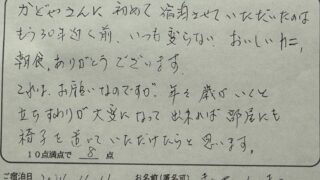 かどやさんに 初めて 宿泊させていただいたのは
もう30年近く前、いつも変らない おいしい
朝食、ありがとうございます。
これは、お願いなのですが、年々 歳がいくと
立ちすわりが 大変になって 出来れば 部屋にも
椅子を 置いていただけたらと 思います。
10点満点で 8 点
ご宿泊日 お名前(匿名可)